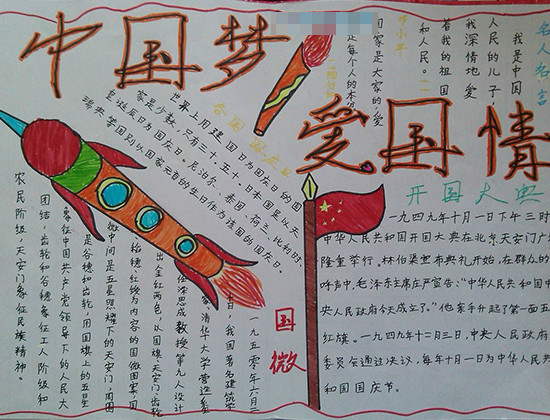 中国梦
爱国情
名人名言
我是中国
人民的儿子,
我深情地爱
着我的祖国
和人民。
邓小平
国家是大家的,爱
国是每个人的本
各国国庆日
世界上用建国日为国庆日的国
家是少数,只有三十五个。日本国是以天
皇诞辰日为国庆日。尼泊尔、泰国、荷兰、比利时、
瑞典等国则以国家元首的生日作为该国的国庆日。
开国大典
一九四九年十月一日下午三时
中华人民共和国开国大典在北京天安门广
隆重举行。林伯渠宣布典礼开始,在群众的
呼声中,毛泽东主席庄严宣布:“中华人民共和国中
央人民政府今天成立了。”他亲手升起了第一面五
红旗。一九四九年十二月三日,中央人民政府
委员会通过决议,每年十月一日为中华人民共
和国国庆节。
国微
一九五〇年六月二
十日,我国著名建筑学
家清华大学营造系
梁思成教授等几人设计
出金红两色,以国旗、天安门、齿轮
给穗、红绶为内容的国徽图案,国
徽中间是五星照耀下的天安门,周围
是谷穗和齿轮,用国旗上的五星
象征中国共产党领导下的人民大
团结,齿轮和谷穗象征工人阶级和
农民阶级,天安门象征民族精神。